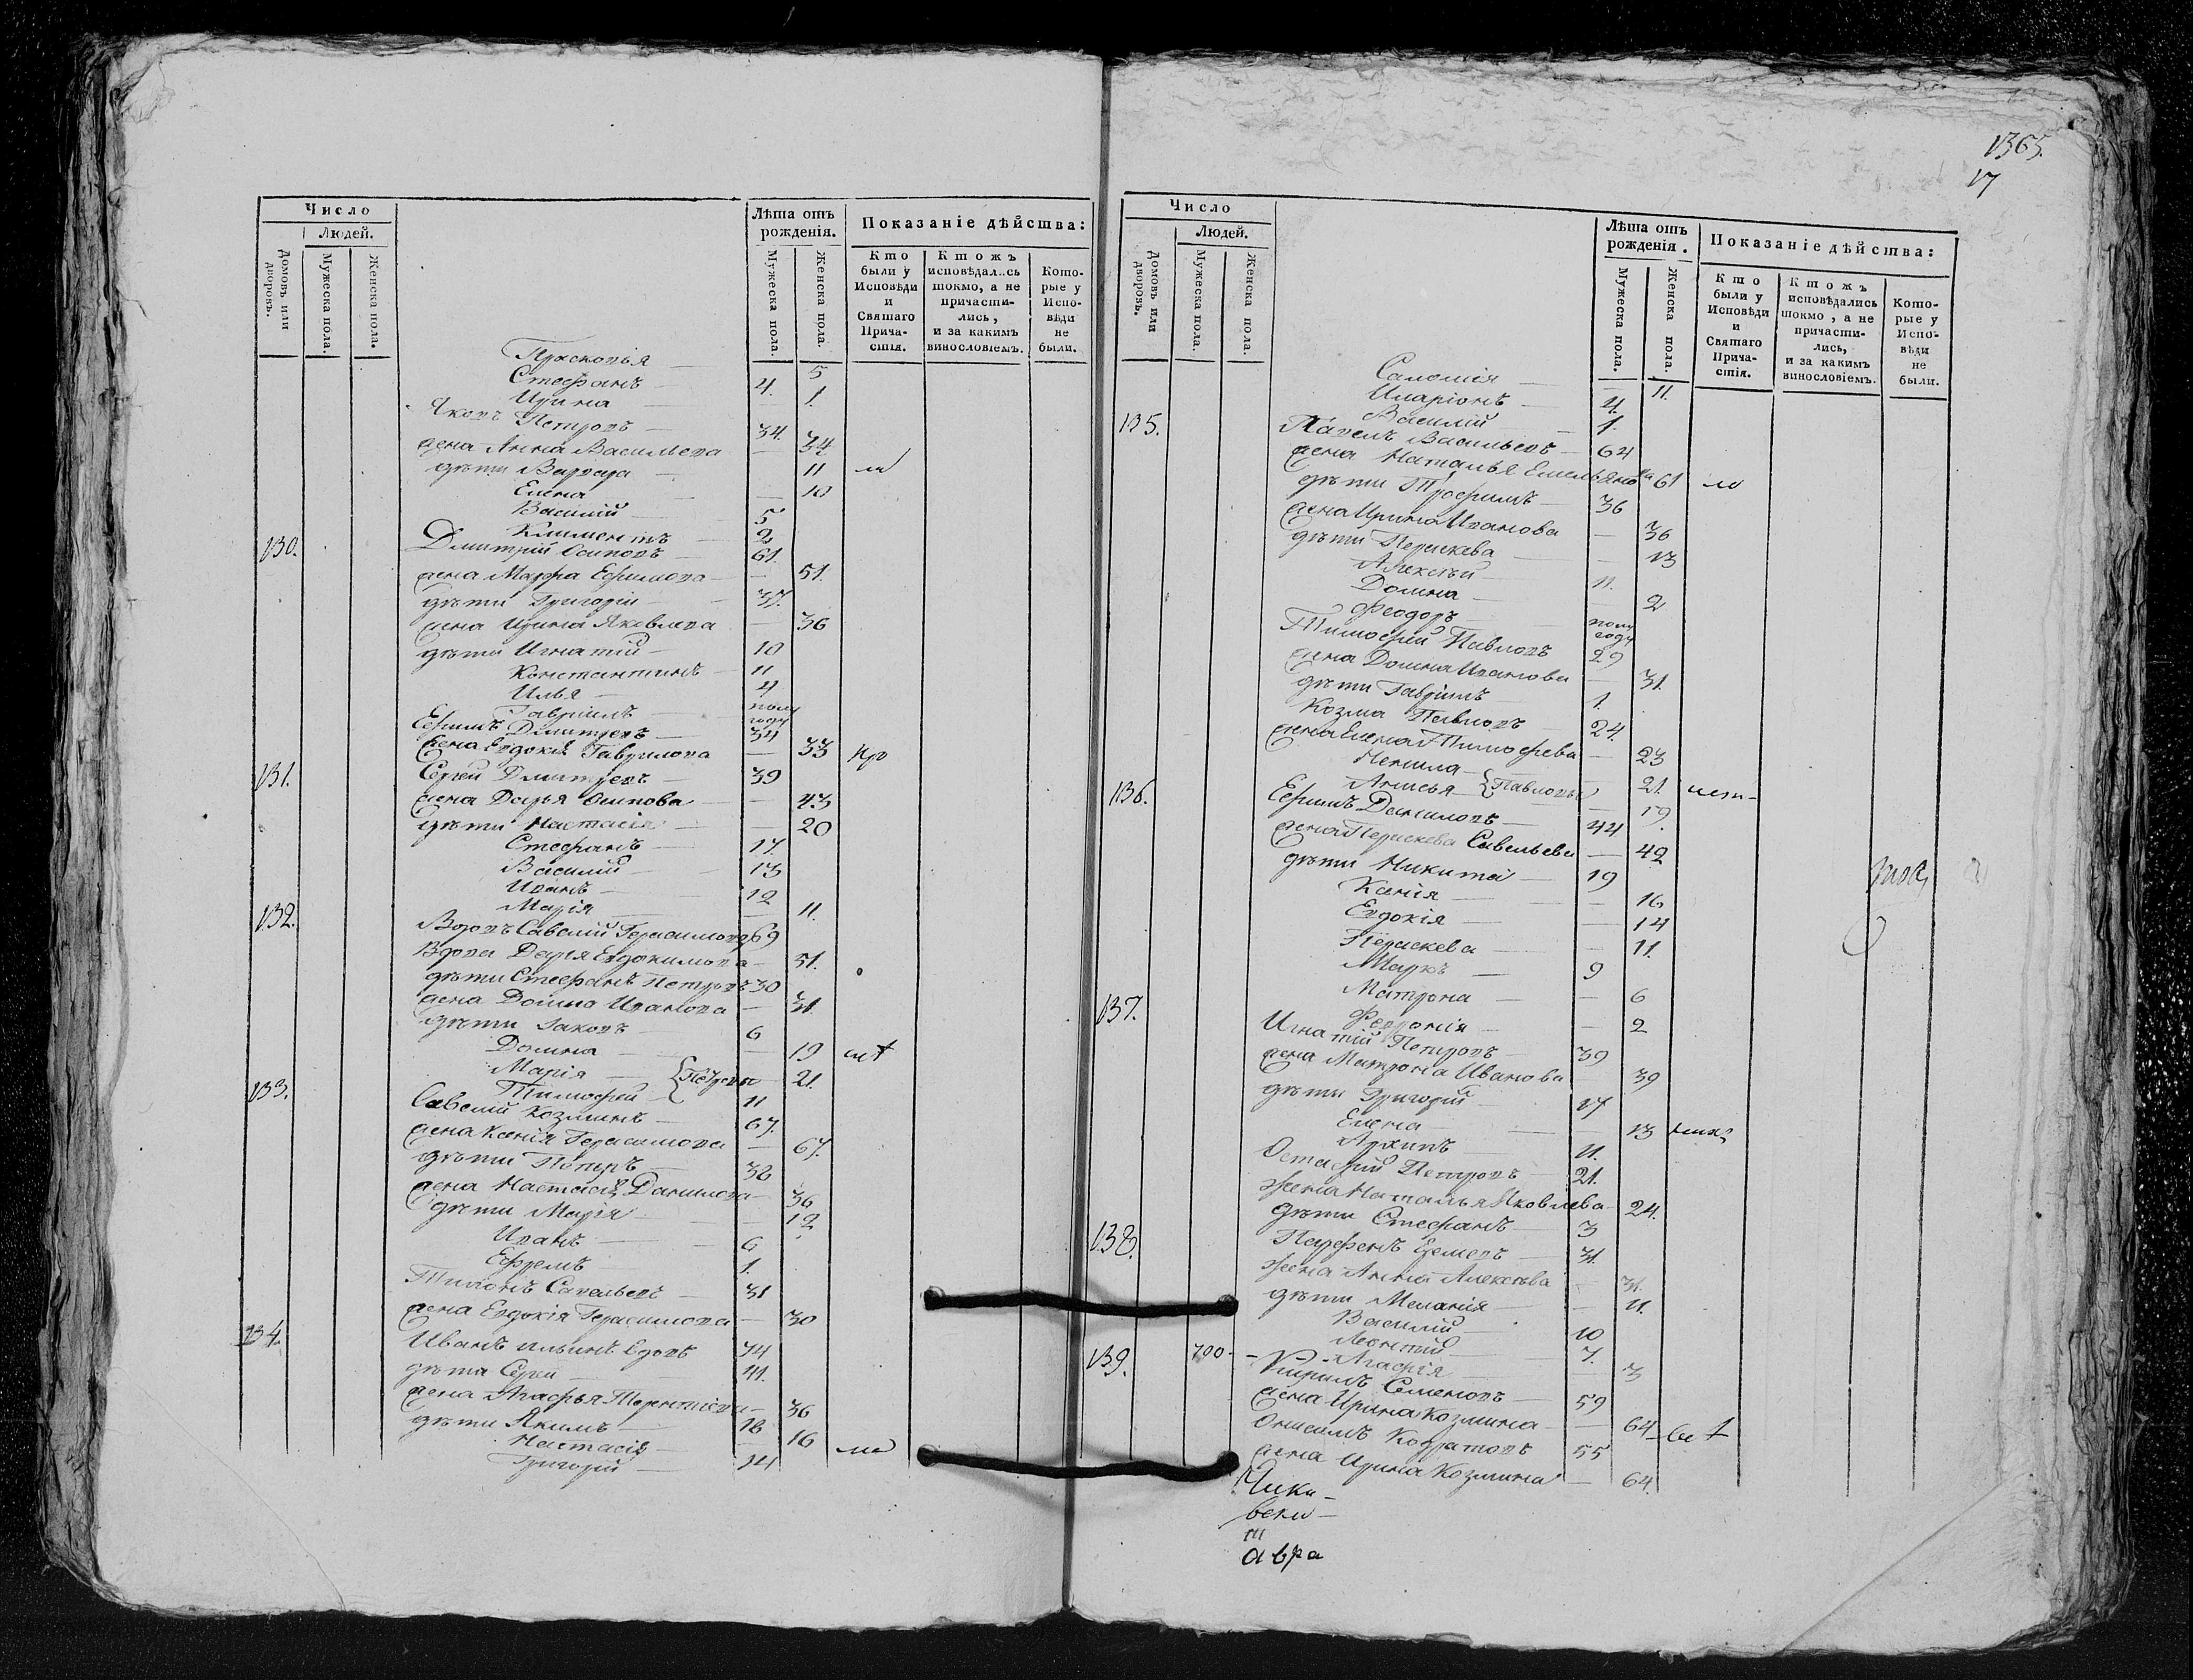 Число
Людей.
Домовъ или дворовъ.
Мужеска пола.
Женска пола.
Лѣта отъ рожденія.
Мужеска пола.
Женска пола.
Показаніе дѣйства:
Кто были у Исповѣди и Святаго Причастія.
Ктожъ исповѣдались токмо, а не причастились, и за какимъ винословіемъ.
Которые у Исповѣди не были.
Прасковья — 5
Стефанъ — 4.
Ирина — 1.
Яковъ Петровъ — 34.
жена Анна Васильева — 34.
дѣти Варвара — 11
Елена — 10
Василій — 5
Климентъ — 2
130. Дмитрій Осиповъ — 61.
жена Марфа Ефимова — 51.
дѣти Григорій — 37.
жена Ирина Яковлева — 36
дѣти Игнатій — 10
Константинъ — 11
Илья — 4
Гавріилъ — полу году
Ефимъ Дмитревъ — 34
жена Евдокія Гаврилова — 33
131. Сергей Дмитревъ — 39
жена Дарья Осипова — 43
дѣти Настасія — 20
Стефанъ — 17
Василій — 13
Иванъ — 12
Марія — 11.
132. Савелій Герасимовъ 69
Вдова Дарья Евдокимова — 51.
дѣти Стефанъ Петровъ 30
жена Домна Иванова — 31.
дѣти Іаковъ — 6
Домна — 19
Марія — 21.
Тимофей — 11
133. Савелій Козминъ — 67.
жена Ксенія Герасимова — 67.
дѣти Петръ — 38
жена Настасія Данилова — 36
дѣти Марія — 12
Иванъ — 6
Ефремъ — 1.
Тихонъ Савельевъ — 31
жена Евдокія Герасимова — 30
134. Иванъ Ильинъ вдовъ 74
дѣти Сергей — 41.
жена Агафья Терентіева — 36
дѣти Якимъ — 18
Настасія — 16
Григорій — 14
1365.
17
Число
Людей.
Домовъ или дворовъ.
Мужеска пола.
Женска пола.
Лѣта отъ рожденія.
Мужеска пола.
Женска пола.
Показаніе дѣйства:
Кто были у Исповѣди и Святаго Причастія.
Ктожъ исповѣдались токмо, а не причастились, и за какимъ винословіемъ.
Которые у Исповѣди не были.
Саломія — 11.
Иларіонъ — 4.
Василій — 1.
135. Павелъ Васильевъ — 64
жена Наталья Емельянова 61
дѣти Трофимъ — 36
жена Ирина Иванова — 36
дѣти Параскева — 13
Алексѣй — 11.
Домна — 2
Феодоръ — полу году
Тимофей Павловъ 29
жена Домна Иванова — 31.
дѣти Гавріилъ — 1.
Козма Павловъ — 24.
жена Елена Тимофеева — 23
Ненила — 21.
Анисья — {Павловы 19
136. Ефимъ Даниловъ — 44
жена Параскева Савельева — 42
дѣти Никита — 19
Ксенія — 16
Евдокія — 14
Параскева — 11.
Маркъ — 9
Матрона — 6
Февронія — 2
137. Игнатій Петровъ — 39
жена Матрона Иванова 39
дѣти Григорій — 17
Елена — 13
Архипъ — 11.
Остафий Петровъ — 21.
жена Наталья Яковлева — 24.
дѣти Стефанъ — 3
138. Парфенъ — 31.
жена Анна Алексѣева — 31.
дѣти Меланія — 11.
Василій — 10
Леонтій — 7.
Агафія — 3
139. 700. — Кирилъ Семеновъ — 59
жена Ирина Козмина — 64
Онисимъ Кондратовъ 55
жена Ирина Козмина — 64.